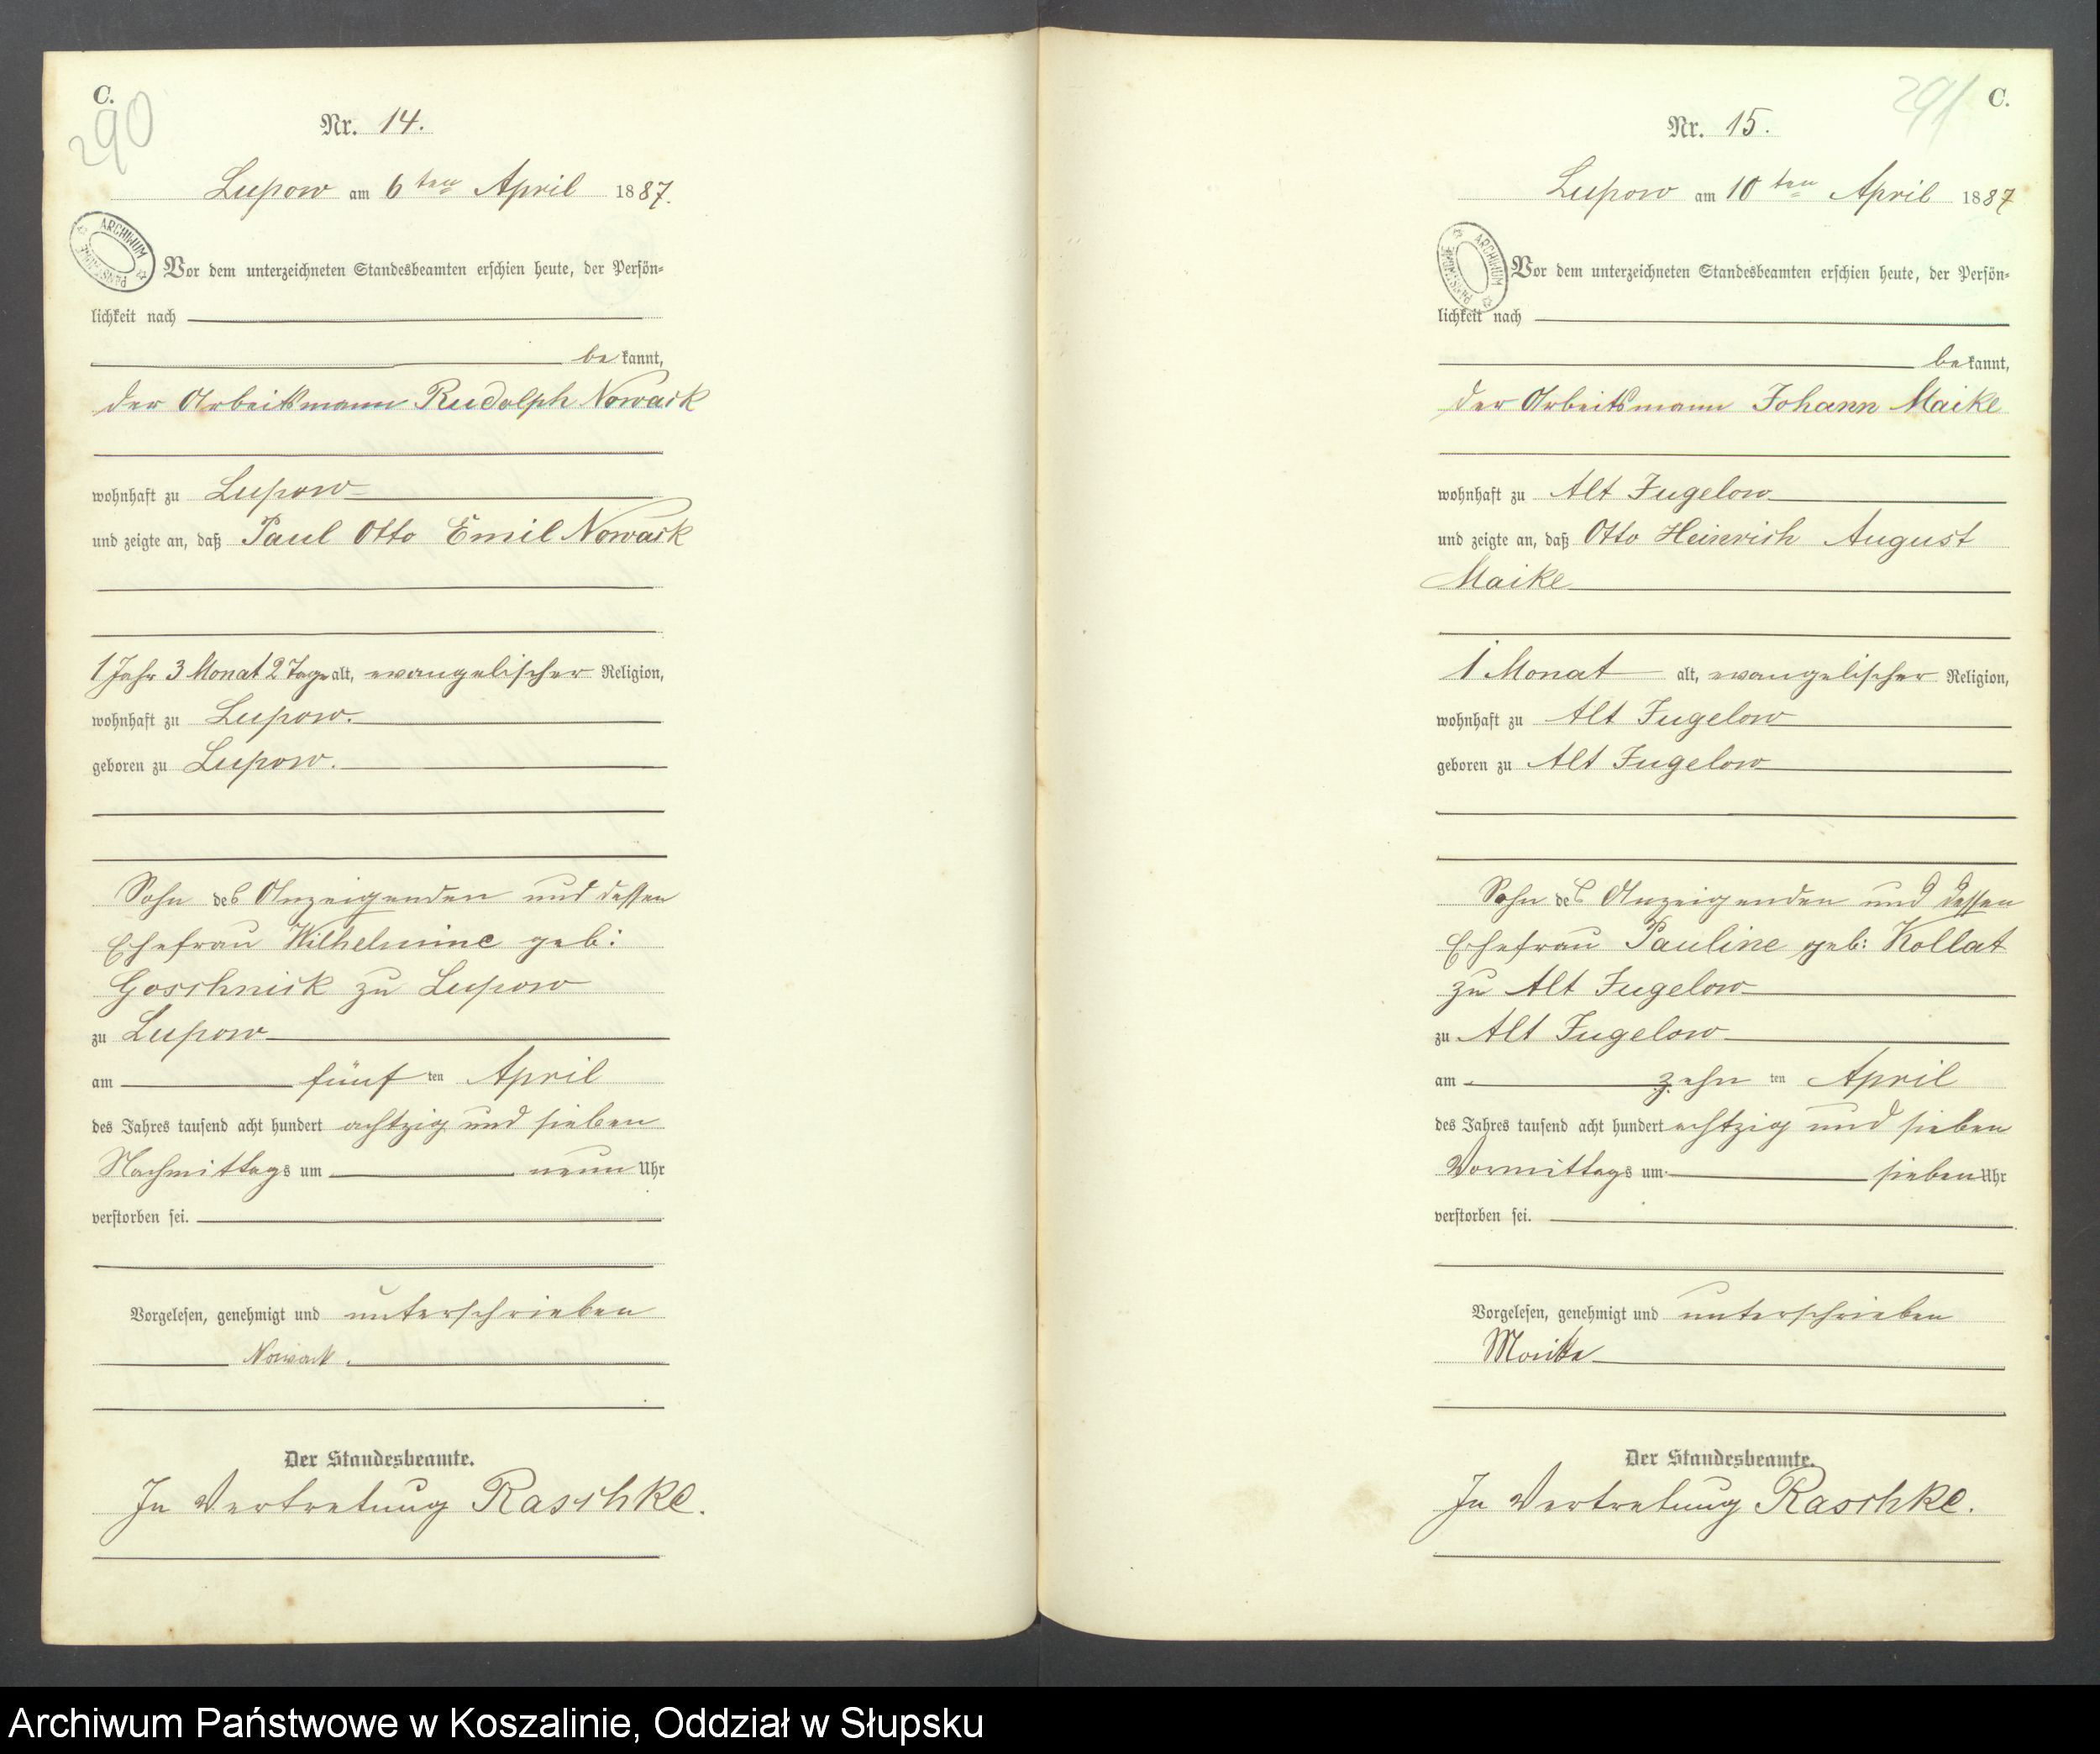 C.
290
Nr. 14.
Lupow am 6ten April 1887.
ARCHIWUM PAŃSTWOWE
Vor dem unterzeichneten Standesbeamten erschien heute, der Persön=
lichkeit nach
bekannt,
der Arbeitsmann Rudolph Nowack
wohnhaft zu Lupow
und zeigte an, daß Paul Otto Emil Nowack
1 Jahr 3 Monat 2 Tage alt, evangelischer Religion,
wohnhaft zu Lupow.
geboren zu Lupow.
Sohn des Anzeigenden und dessen
Ehefrau Wilhelmine geb:
Goschnick zu Lupow
zu Lupow
am fünf ten April
des Jahres tausend acht hundert achtzig und sieben
Nachmittags um neun Uhr
verstorben sei.
Vorgelesen, genehmigt und unterschrieben
Nowack.
Der Standesbeamte.
In Vertretung Raschke.
291
C.
Nr. 15.
Lupow am 10ten April 1887
ARCHIWUM PAŃSTWOWE
Vor dem unterzeichneten Standesbeamten erschien heute, der Persön=
lichkeit nach
bekannt,
der Arbeitsmann Johann Maike
wohnhaft zu Alt Jugelow
und zeigte an, daß Otto Heinrich August
Maike
1 Monat alt, evangelischer Religion,
wohnhaft zu Alt Jugelow
geboren zu Alt Jugelow
Sohn des Anzeigenden und dessen
Ehefrau Pauline geb: Kollat
zu Alt Jugelow
zu Alt Jugelow
am zehn ten April
des Jahres tausend acht hundert achtzig und sieben
Vormittags um sieben Uhr
verstorben sei.
Vorgelesen, genehmigt und unterschrieben
Der Standesbeamte.
In Vertretung Raschke.
Archiwum Państwowe w Koszalinie, Oddział w Słupsku